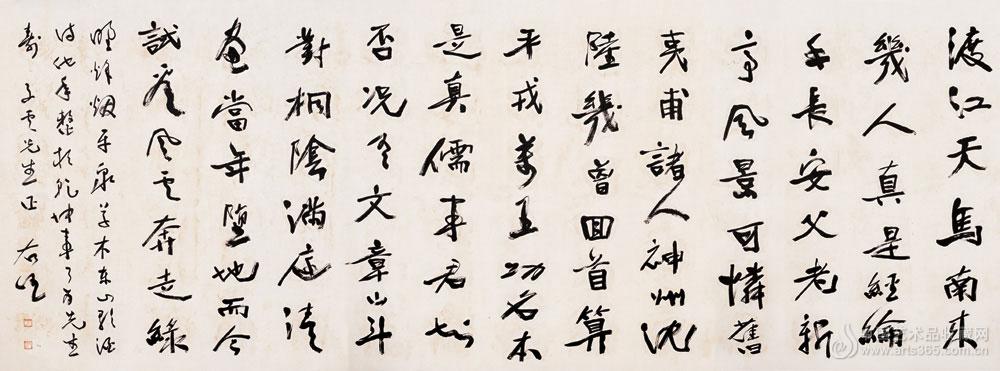 渡江天馬南來
幾人真是經綸
手長安父老新
亭風景可憐舊
夷甫諸人神州沈
陸幾曾回首算
平戎萬里功名本
是真儒事君知
否況有文章山斗
對桐陰滿庭清
晝當年墮地而今
試看風雲奔走綠
野烽烟平泉草木東山歌酒
待他年整頓乾坤事了為先生
壽 子雲先生正 右任
www.arts365.com.cn